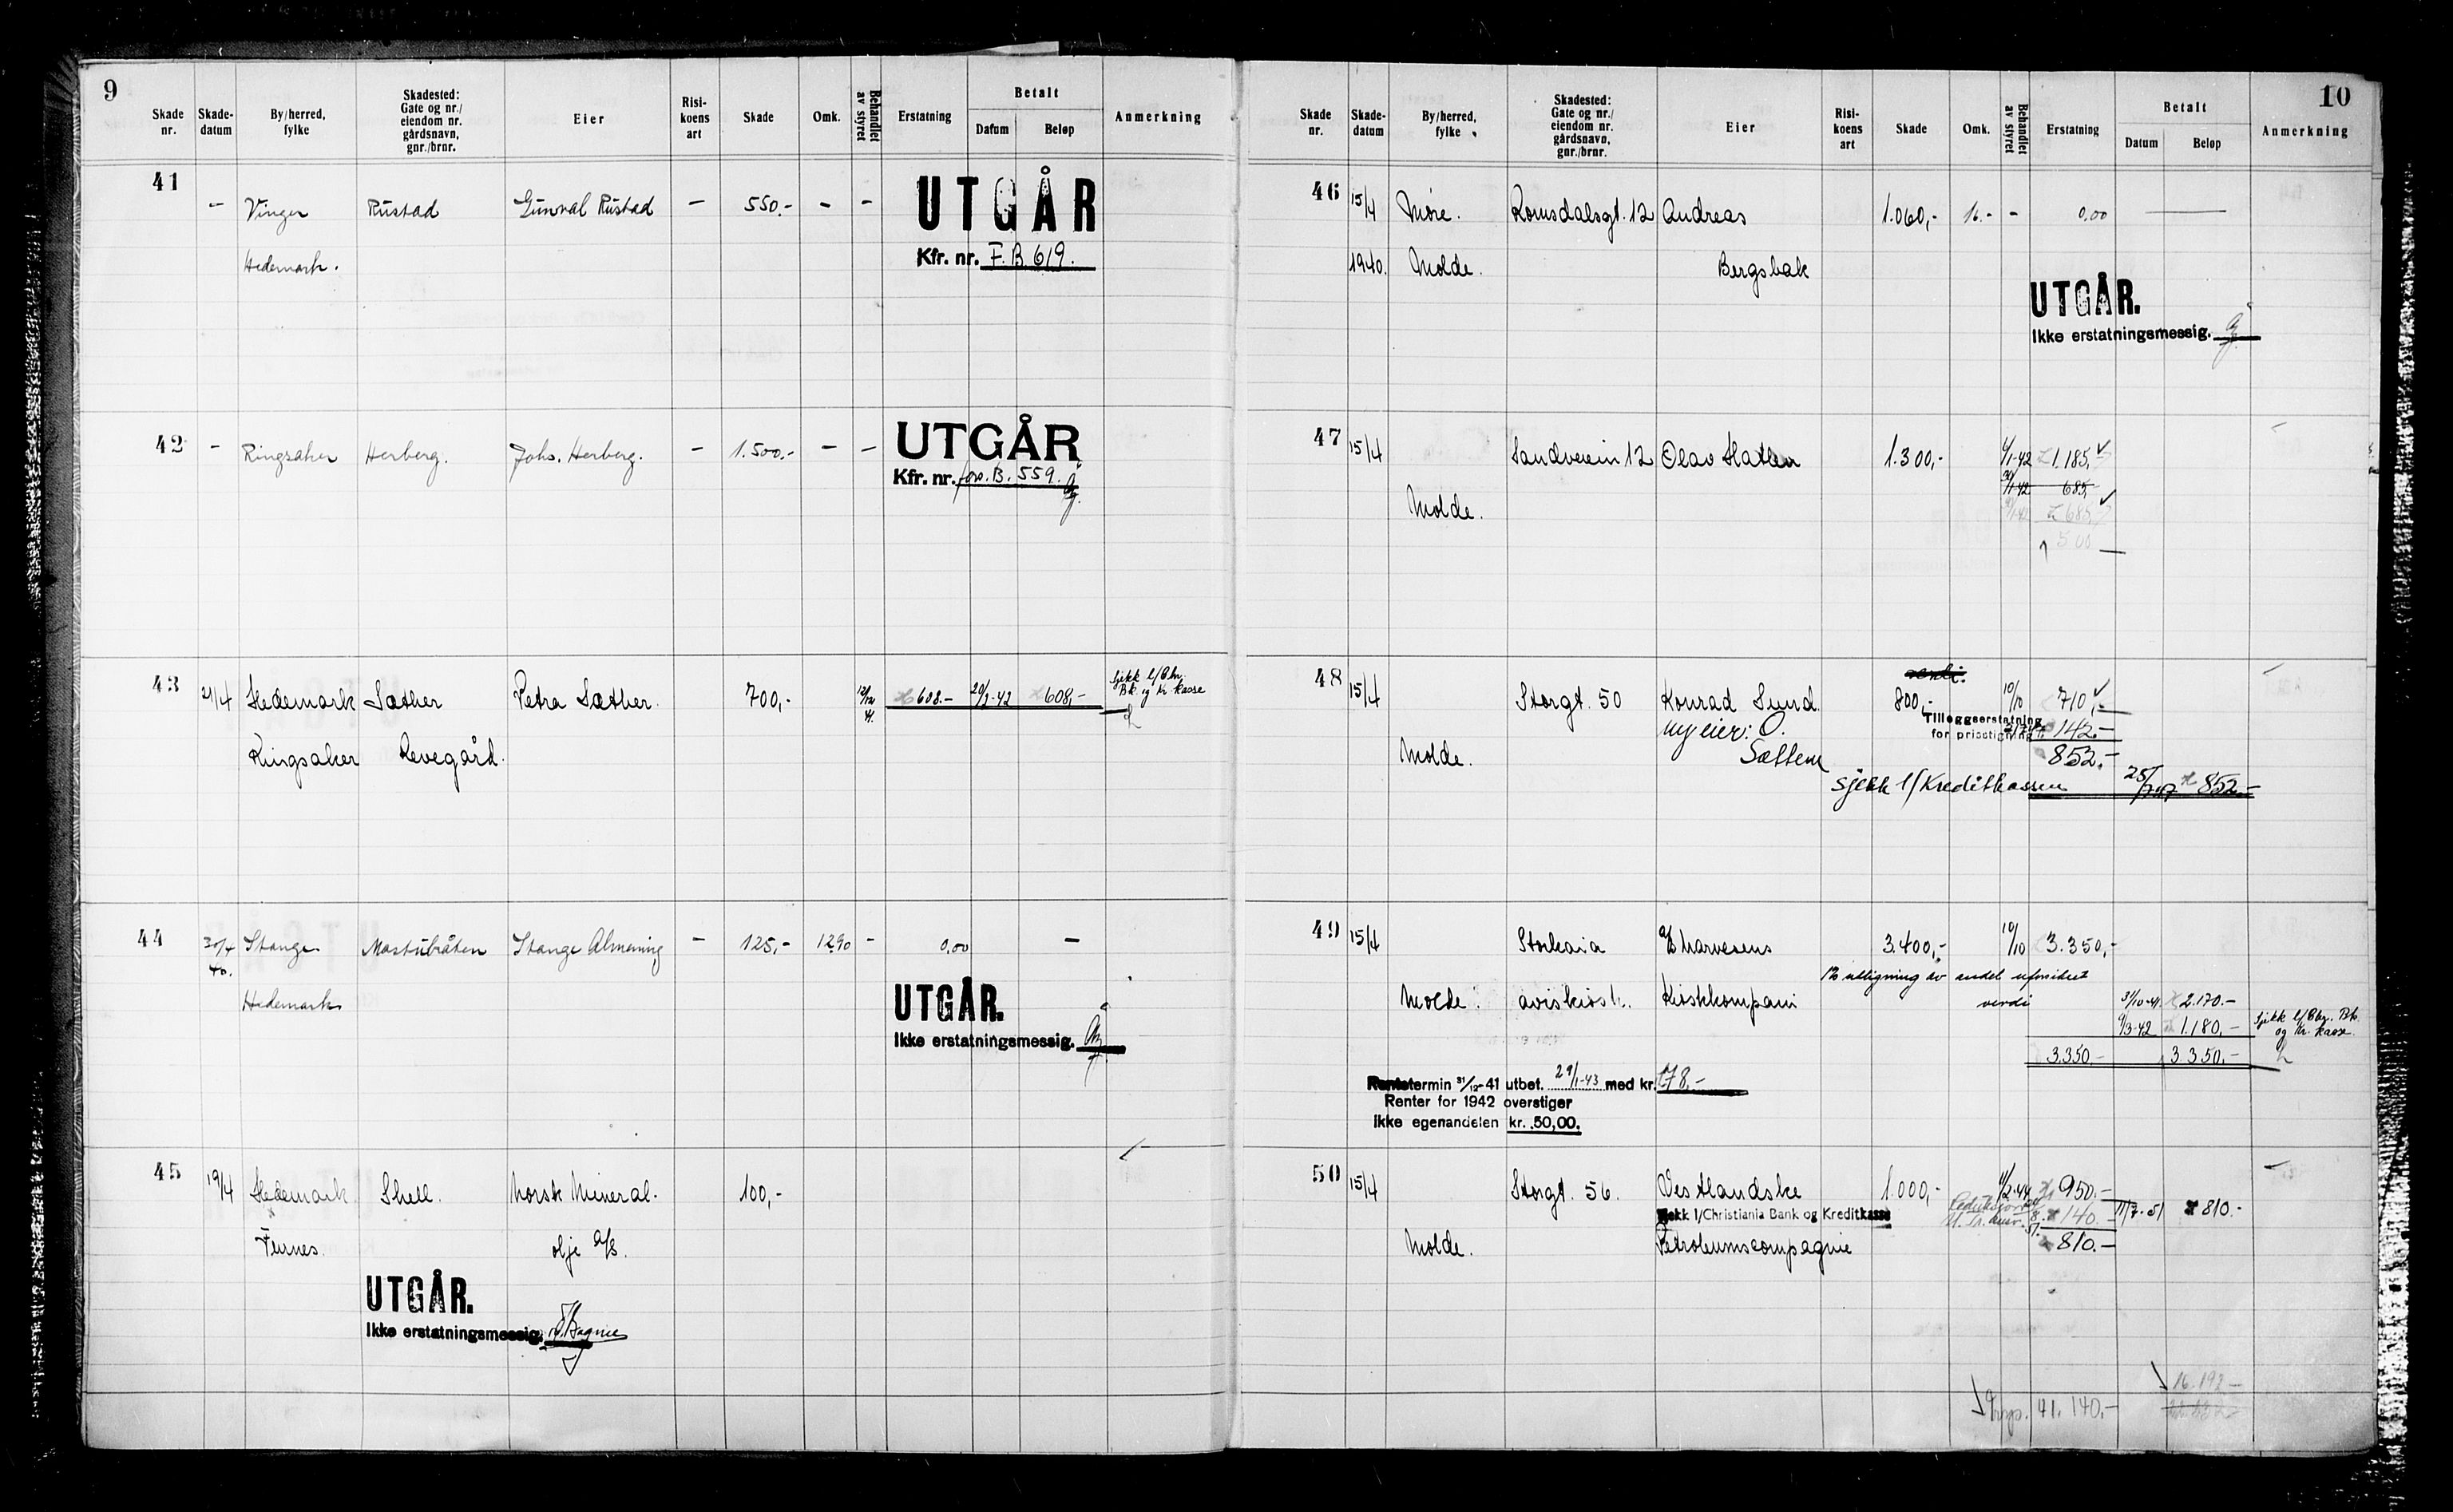 9
Skade nr. Skade-datum By/herred, fylke Skadested: Gate og nr./ eiendom nr. gårdsnavn, gnr./brnr. Eier Risi-koens art Skade Omk. Behandlet av styret Erstatning Betalt Datum Beløp Anmerkning
41 - Vinger Rustad Gunval Rustad - 550.- - - UTGÅR
Hedemark. Kfr. nr. F.B. 619.
42 - Ringsaker Herberg. Johs. Herberg. - 1.500.- - - UTGÅR
Kfr. nr. fors. B. 559.
43 21/4 Hedemark Sæther Petra Sæther. 700,- 12/12 41. 608.- 20/3-42 608,- Sjekk l/Chr. Bk. og Kr. kasse
Ringsaker Revegård.
44 30/4 40. Stange Mastubråten Stange Almening - 125,- 12.90 - 0.00 -
Hedemark
UTGÅR.
Ikke erstatningsmessig.
45 19/4 Hedemark. Shell. Norsk Mineral- 100,-
Furnes. olje A/S.
UTGÅR.
Ikke erstatningsmessig.
10
Skade nr. Skade-datum By/herred, fylke Skadested: Gate og nr./ eiendom nr. gårdsnavn, gnr./brnr. Eier Risi-koens art Skade Omk. Behandlet av styret Erstatning Betalt Datum Beløp Anmerkning
46 15/4 Møre. Romsdalsgt. 12 Andreas 1.060,- 16.- - 0,00
1940. Molde. Bergsbak
UTGÅR.
Ikke erstatningsmessig.
47 15/4 Sandveien 12 Olav Hatlen 1.300,- 6/1-42 1.185,-
685,-
Molde. 685,-
500
48 15/4 Storgt. 50 Konrad Sund. 800,- 10/10 710,-
Tilleggserstatning
ny eier: O. for prisstigning 142.-
Molde. Sættem 852.-
sjekk l/Kreditkassen 852.-
49 15/4 Storkaia A/S Narvesens 3.400,- 10/10 3.350,-
utligning av andel uforsikret
Molde. aviskiosk. Kioskkompani verdi 31/10-41. 2.170.-
9/3-42 1.180,- Sjekk l/Chr. Bk. og Kr. kasse
3.350.- 3.350,-
Rentetermin 31/12-41 utbet. 29/1-43 med kr. 178.-
Renter for 1942 overstiger
ikke egenandelen kr. 50,00.
50 15/4 Storgt. 56. Vestlandske 1.000,- 950.-
Sjekk l/Christiania Bank og Kreditkasse 140.- 11/7-51 810.-
Molde. Petroleumscompagnie 810.-
16.192-
41.140,-